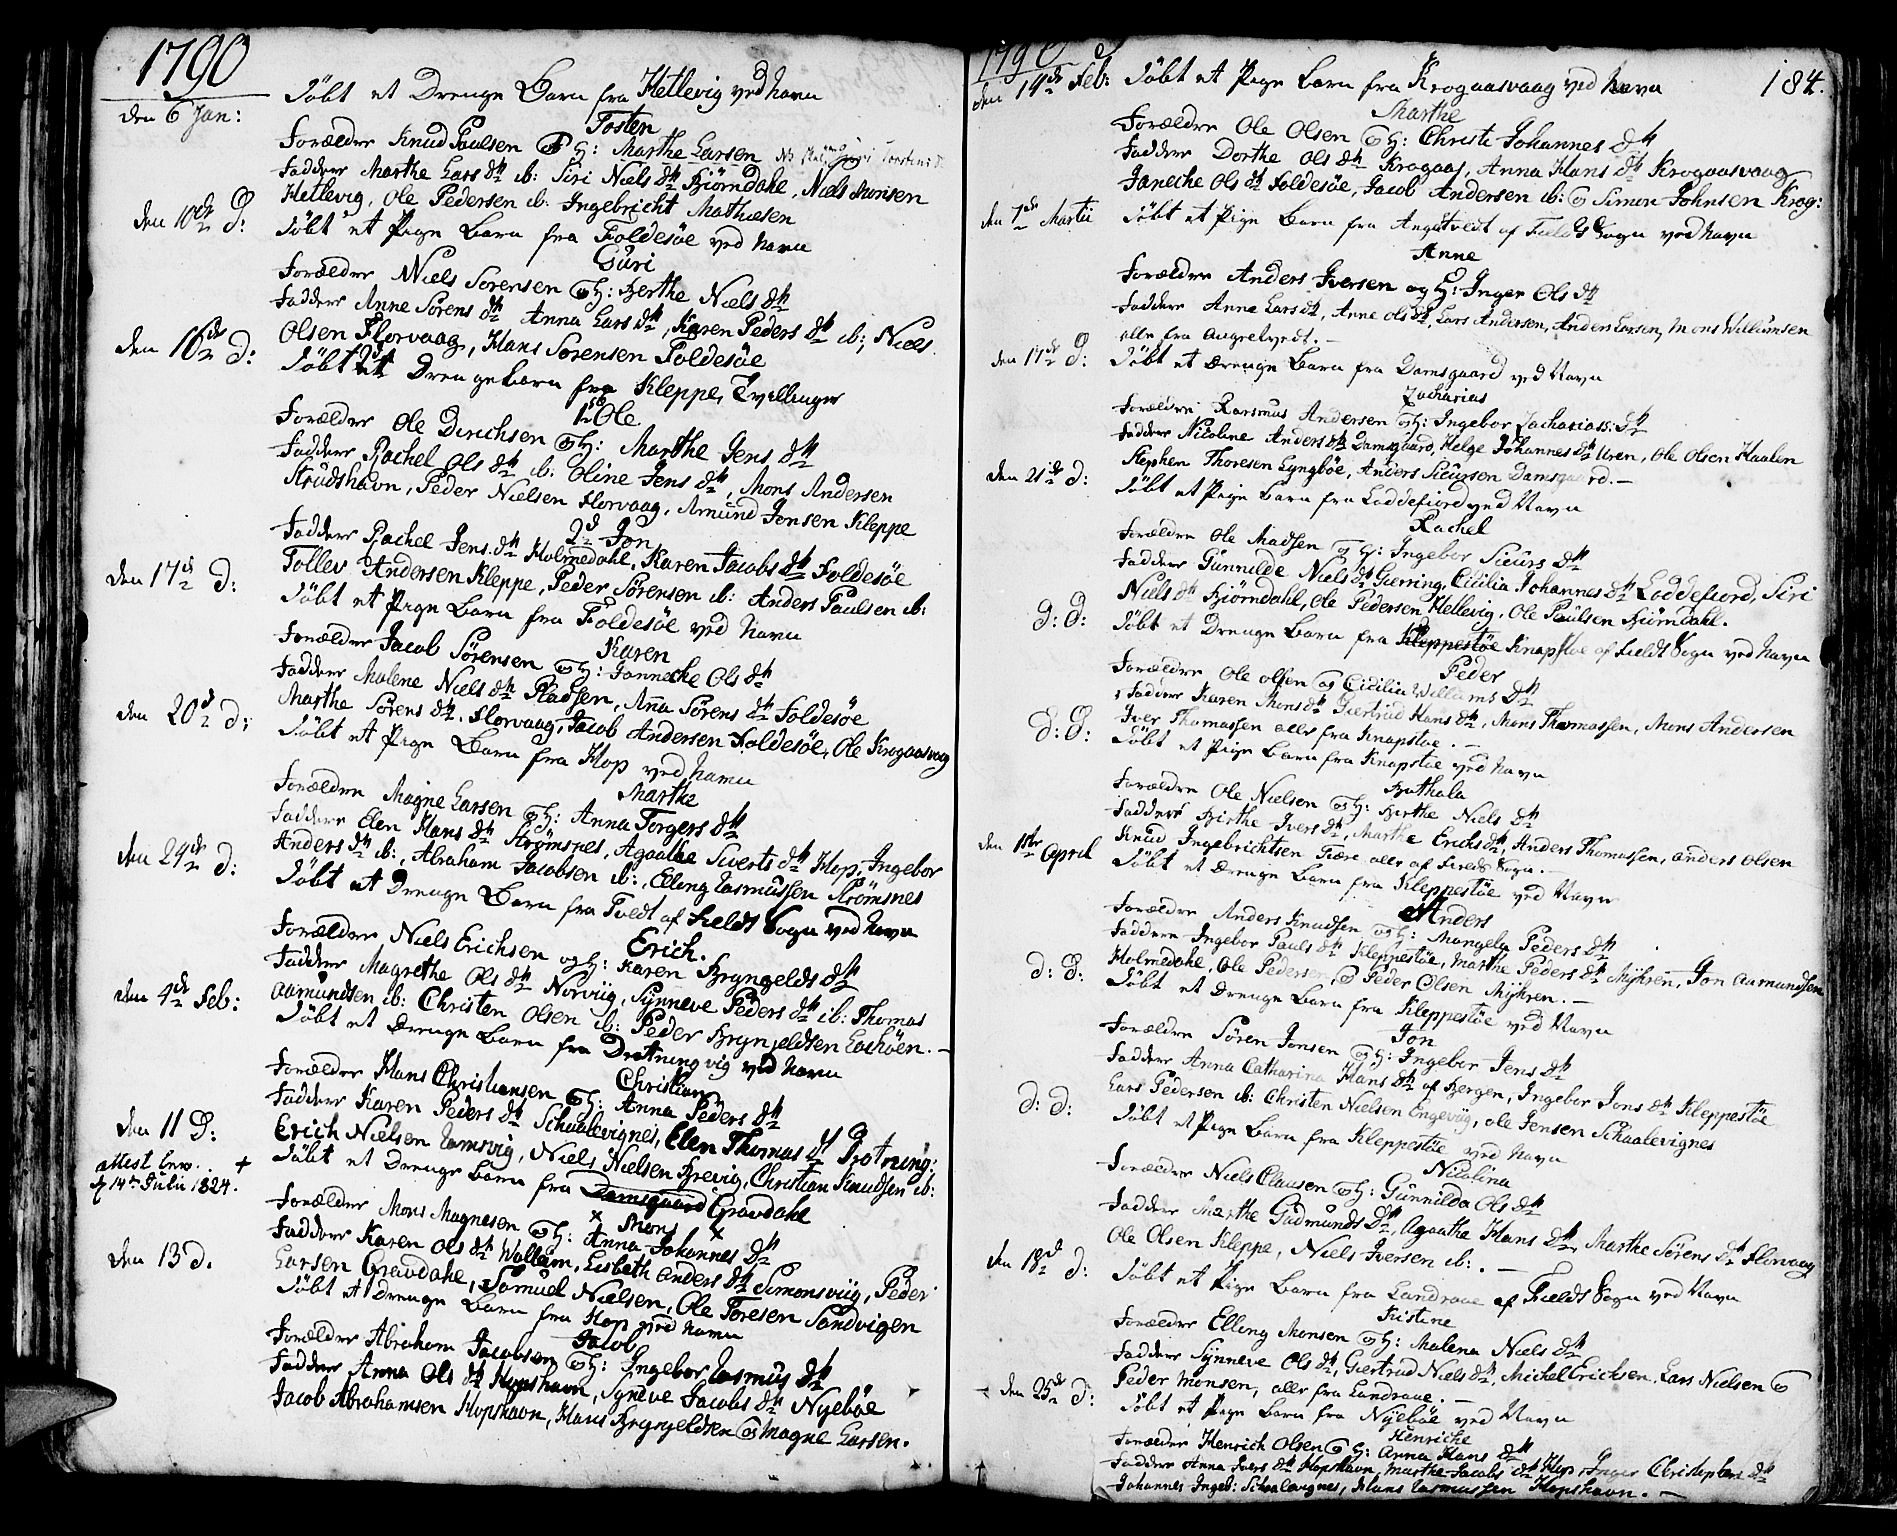 1790
den 6 Jan:
Döbt et Drenge Barn fra Hetlevig ved Navn
Tosten
Forældre Knud Paulsen og H: Marthe Larsen
Faddere Marthe Lars dtr ib: Siri Niels dtr Biörndahl, Niels Monsen
Hetlevig, Ole Pedersen ib: Ingebricht Mathiesen
den 10de D:
Döbt et Pige Barn fra Foldesöe ved Navn
Guri
Forældre Niels Sorensen og H: Berthe Niels dtr
Faddere Anne Sorens dtr Anna Lars dtr, Karen Peders dtr ib:, Niels
Olsen Florvaag, Hans Sorensen Foldesöe
den 16de D:
Döbt 2de Drengebarn fra Kleppe, Tvillinger
1ste Ole
Forældre Ole Dirichsen og H: Marthe Jens dtr
Faddere Rachel Ols dtr ib: Oline Jens dtr, Mons Andersen
Strudshavn, Peder Nielsen Florvaag, Amund Jonsen Kleppe
2de Jon
Faddere Rachel Jens dtr Holmedahl, Karen Jacobs dtr Foldesöe
Tollev Andersen Kleppe, Peder Sörensen ib: Anders Paulsen ib:
den 17de D:
Döbt et Pige Barn fra Foldesöe ved Navn
Karen
Forældre Jacob Sörensen og H: Janneche Ols dtr
Faddere Malene Niels dtr Pladsen, Anna Sörens dtr Foldesöe
Marthe Sörens dtr Florvaag, Jacob Andersen Foldesöe, Ole Krogaasvaag
den 20de D:
Döbt et Pige Barn fra Hop ved Navn
Marthe
Forældre Magne Larsen og H: Anna Torgers dtr
Faddere Elen Hans dtr Strömsnes, Agaathe Siverts dtr Hop, Ingebor
Anders dtr ib:, Abraham Jacobsen ib:, Elling Rasmussen Strömsnes
den 24de D:
Döbt et Drenge Barn fra Tvedt af Fields Sogn ved Navn
Erich.
Forældre Niels Erichsen og H: Karen Bryngelds dtr
Faddere Magrethe Ols dtr Norviig, Synneve Peders dtr ib: Thomas
Aamundsen ib: Christen Olsen ib: Peder Bryngeldsen
den 4de Feb:
Döbt et Drenge Barn fra Drotningvig ved Navn
Christian
Forældre Hans Christiansen og H: Anna Peders dtr
Faddere Karen Peders dtr Schaalevignes, Elen Thomas dtr Drotning:
Erich Nielsen Ramsvig, Niels Nielsen Brevig, Christian Knudsen ib:
den 11 D:
attest bev. +
d 14de Julii 1824.
Döbt et Drenge Barn fra Damsgaard Gravdahl
x Mons x
Forældre Mons Magnesen og H: Anna Johannes dtr
Faddere Karen Ols dtr Wallem, Lisbeth Anders dtr Simonsviig, Peder
Larsen Gravdahl, Samuel Nielsen, Ole Toresen Sandvigen
den 13 D.
Döbt et Drenge Barn fra Hop ved Navn
Jacob
Forældre Abraham Jacobsen og H: Ingebor Rasmus dtr
Faddere Anna Ols dtr Hopshavn, Syneve Jacobs dtr Nyeböe
Jacob Abrahamsen Hopshavn, Hans Bryngeldsen og Magne Larsen.
1790
184.
den 14de Feb:
Döbt et Pige Barn fra Krogaasvaag ved Navn
Marthe
Forældre Ole Olsen og H: Christi Johannes dtr
Faddere Dorthe Ols dtr Krogaas, Anna Hans dtr Krogaasvaag
Janeche Ols dtr Foldesöe, Jacob Andersen ib: og Simon Johnsen Krog:
den 7de Martii
Döbt et Pige Barn fra Angeltvedt af Fields Sogn ved Navn
Anne
Forældre Anders Iversen og H: Inger Ols dtr
Faddere Anna Lars dtr, Anne Ols dtr, Lars Andersen, Anders Larsen, Mons Willumsen
alle fra Angeltvedt. —
den 14de D:
Döbt et Drenge Barn fra Damsgaard ved Navn
Zacharias
Forældre Rasmus Andersen og H: Ingebor Zacharias: dtr
Faddere Nicoline Anders dtr Damsgaard, Helge Johannes dtr Uren, Ole Olsen Haalen
Stephen Thoresen Lyngböe, Anders Siursen Damsgaard. —
den 21de D:
Döbt et Pige Barn fra Loddefiord ved Navn
Rachel
Forældre Ole Madsen og H: Ingebor Siurs dtr
Faddere Gunnilde Niels dtr Gierring, Cicilia Johannes dtr Loddefiord, Siri
Niels dtr Biörndahl, Ole Pedersen Hetlevig, Ole Paulsen Biörndahl.
D: D:
Döbt et Drenge Barn fra Kleppestöe Knapstöe af Fields Sogn ved Navn
Peder
Forældre Ole Olsen og Cicilia Willums dtr
Faddere Karen Mons dtr Giertrud Hans dtr, Mons Thomassen, Mons Andersen
Iver Thomassen alle fra Knapstöe. —
D: D:
Döbt et Pige Barn fra Knapstöe ved Navn
Forældre Ole Nielsen og H: Berthe Niels dtr
Faddere Birthe Ivers dtr, Marthe Erichs dtr, Anders Thomassen, Anders Olsen
Knud Ingebrichtsen alle af Fields Sogn. —
den 1ste April
Döbt et Drenge Barn fra Kleppestöe ved Navn
Anders
Forældre Anders Knudsen og H: Mangela Peders dtr
Faddere Ingebor Pauls dtr Kleppestöe, Marthe Peders dtr Myhren, Jon Aamundsen
Holmedahl, Ole Pedersen, og Peder Olsen Myhren. —
D: D:
Döbt et Drenge Barn fra Kleppestöe ved Navn
Jon
Forældre Sören Jonsen og H: Ingebor Jens dtr
Faddere Anna Catharina Hans dtr af Bergen, Ingebor Jons dtr Kleppestöe
Lars Pedersen ib: Christen Nielsen Engeviig, Ole Jensen Schaalevignes
D: D:
Döbt et Pige Barn fra Kleppestöe ved Navn
Nicolina
Forældre Niels Clausen og H: Gunnilda Ols dtr
Faddere Marthe Gudmunds dtr, Agaathe Hans dtr, Marthe Sörens dtr Florvaag
Ole Olsen Kleppe, Niels Iversen ib:. —
den 18de D:
Döbt et Pige Barn fra Landraae af Fields Sogn ved Navn
Kistine
Forældre Elling Monsen og H: Malena Niels dtr
Faddere Synneve Ols dtr, Giertrud Niels dtr, Michel Ericksen, Lars Nielsen og
Peder Monsen, alle fra Landraae. —
den 25de D:
Döbt et Pige Barn fra Nyeböe ved Navn
Henriche
Forældre Henrich Olsen og H: Anna Hans dtr
Faddere Anna Ivers dtr Hopshavn, Marthe Jacobs dtr Hop, Inger Christophers dtr
Johannes Ingeb: Schaalevignes, Hans Rasmussen Hopshavn. —